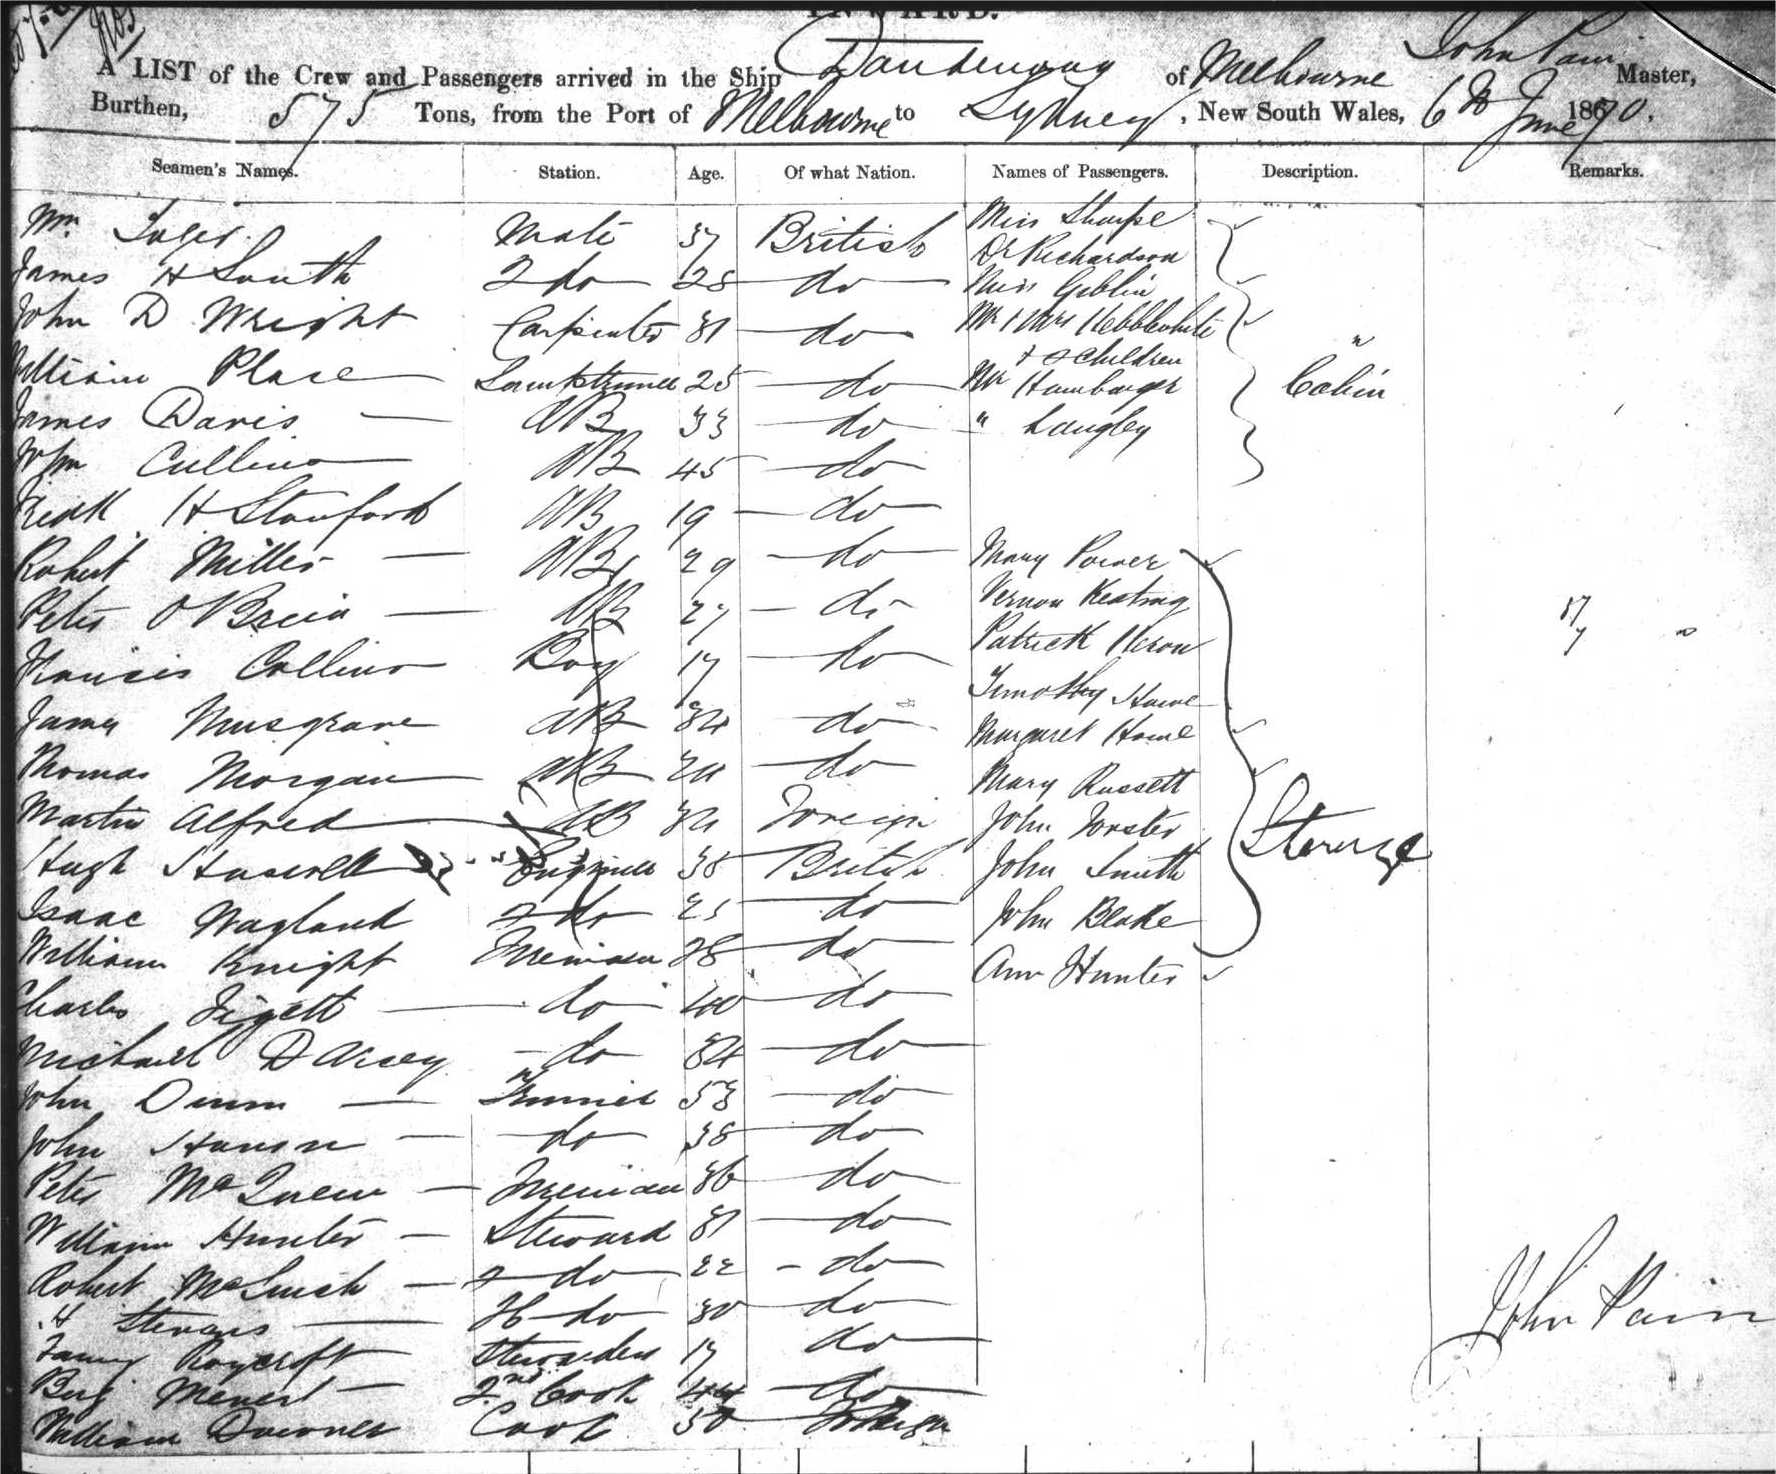 INWARD.
A LIST of the Crew and Passengers arrived in the Ship Dandenong of Melbourne John Pain Master,
Burthen, 575 Tons, from the Port of Melbourne to Sydney, New South Wales, 6th June 1870.
Seamen's Names. Station. Age. Of what Nation. Names of Passengers. Description. Remarks.
Wm Mate 37 British Miss Sharpe
Dr Richardson
James H South 2 do 28 do Miss Giblin
John D Wright Carpenter 31 do Mr & Mrs Hebblewhite
& children
William Place 25 do Mr Hamburger Cabin
James Davis AB 33 do " Langley
John Cullins AB 45 do
Fredk H Stanford AB 19 do
Robert Miller AB 29 do Mary Power
Peter O Brein AB 27 do Vernon Keating
Francis Collins Boy 17 do Patrick Heron
Timothy Howe
James Musgrave AB 34 do Margaret Howe
Thomas Morgan AB do Mary Russett
Martin Alfred AB Foreign John Forster
Hugh Engineer 38 British John Smith Sterage
Isaac Wagland 2 do 25 do John Blake
William Knight Fireman 28 do Ann Hunter
Charles do 40 do
Michael D Arcey do 34 do
John Dunn Trimmer 53 do
John Hanson do 38 do
Peter McQueen Fireman 36 do
William Hunter Steward 31 do
Robert 2 do 22 do
H Stevens do 30 do
Fanny Roycroft Stewardess 17 do
Benj 2nd Cook 44 do
William Downes Cook 50 Foreign
John Pain